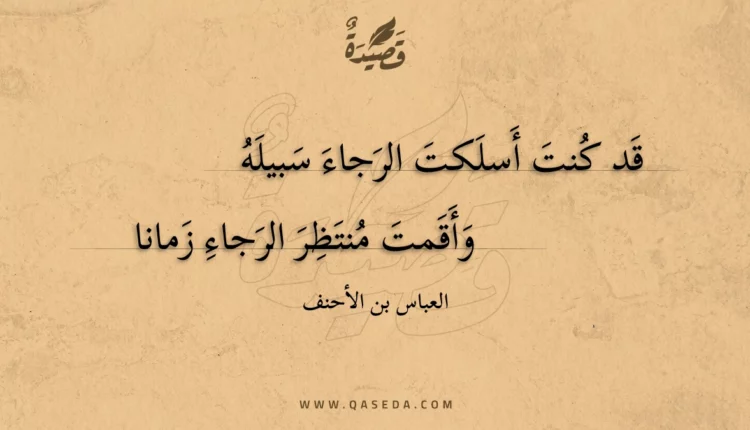 قَصِيْدَةٌ
قَد كُنتَ أَسلَكتَ الرَجاءَ سَبيلَهُ
وَأَقَمتَ مُنتَظِرَ الرَجاءِ زَمانا
العباس بن الأحنف
WWW.QASEDA.COM